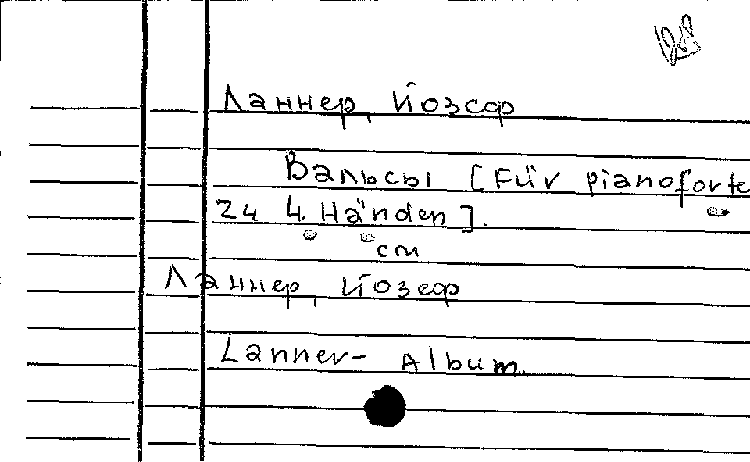 Ланнер, Йозеф
Вальсы [Für pianoforte
zu 4. Händen].
см
Ланнер, Йозеф
Lanner- Album.